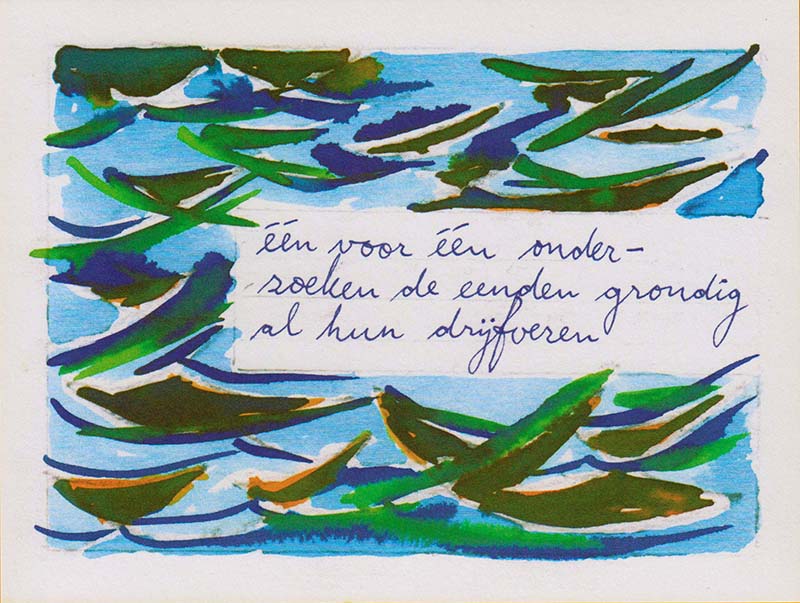 één voor één onder-
zoeken de eenden grondig
al hun drijfveren